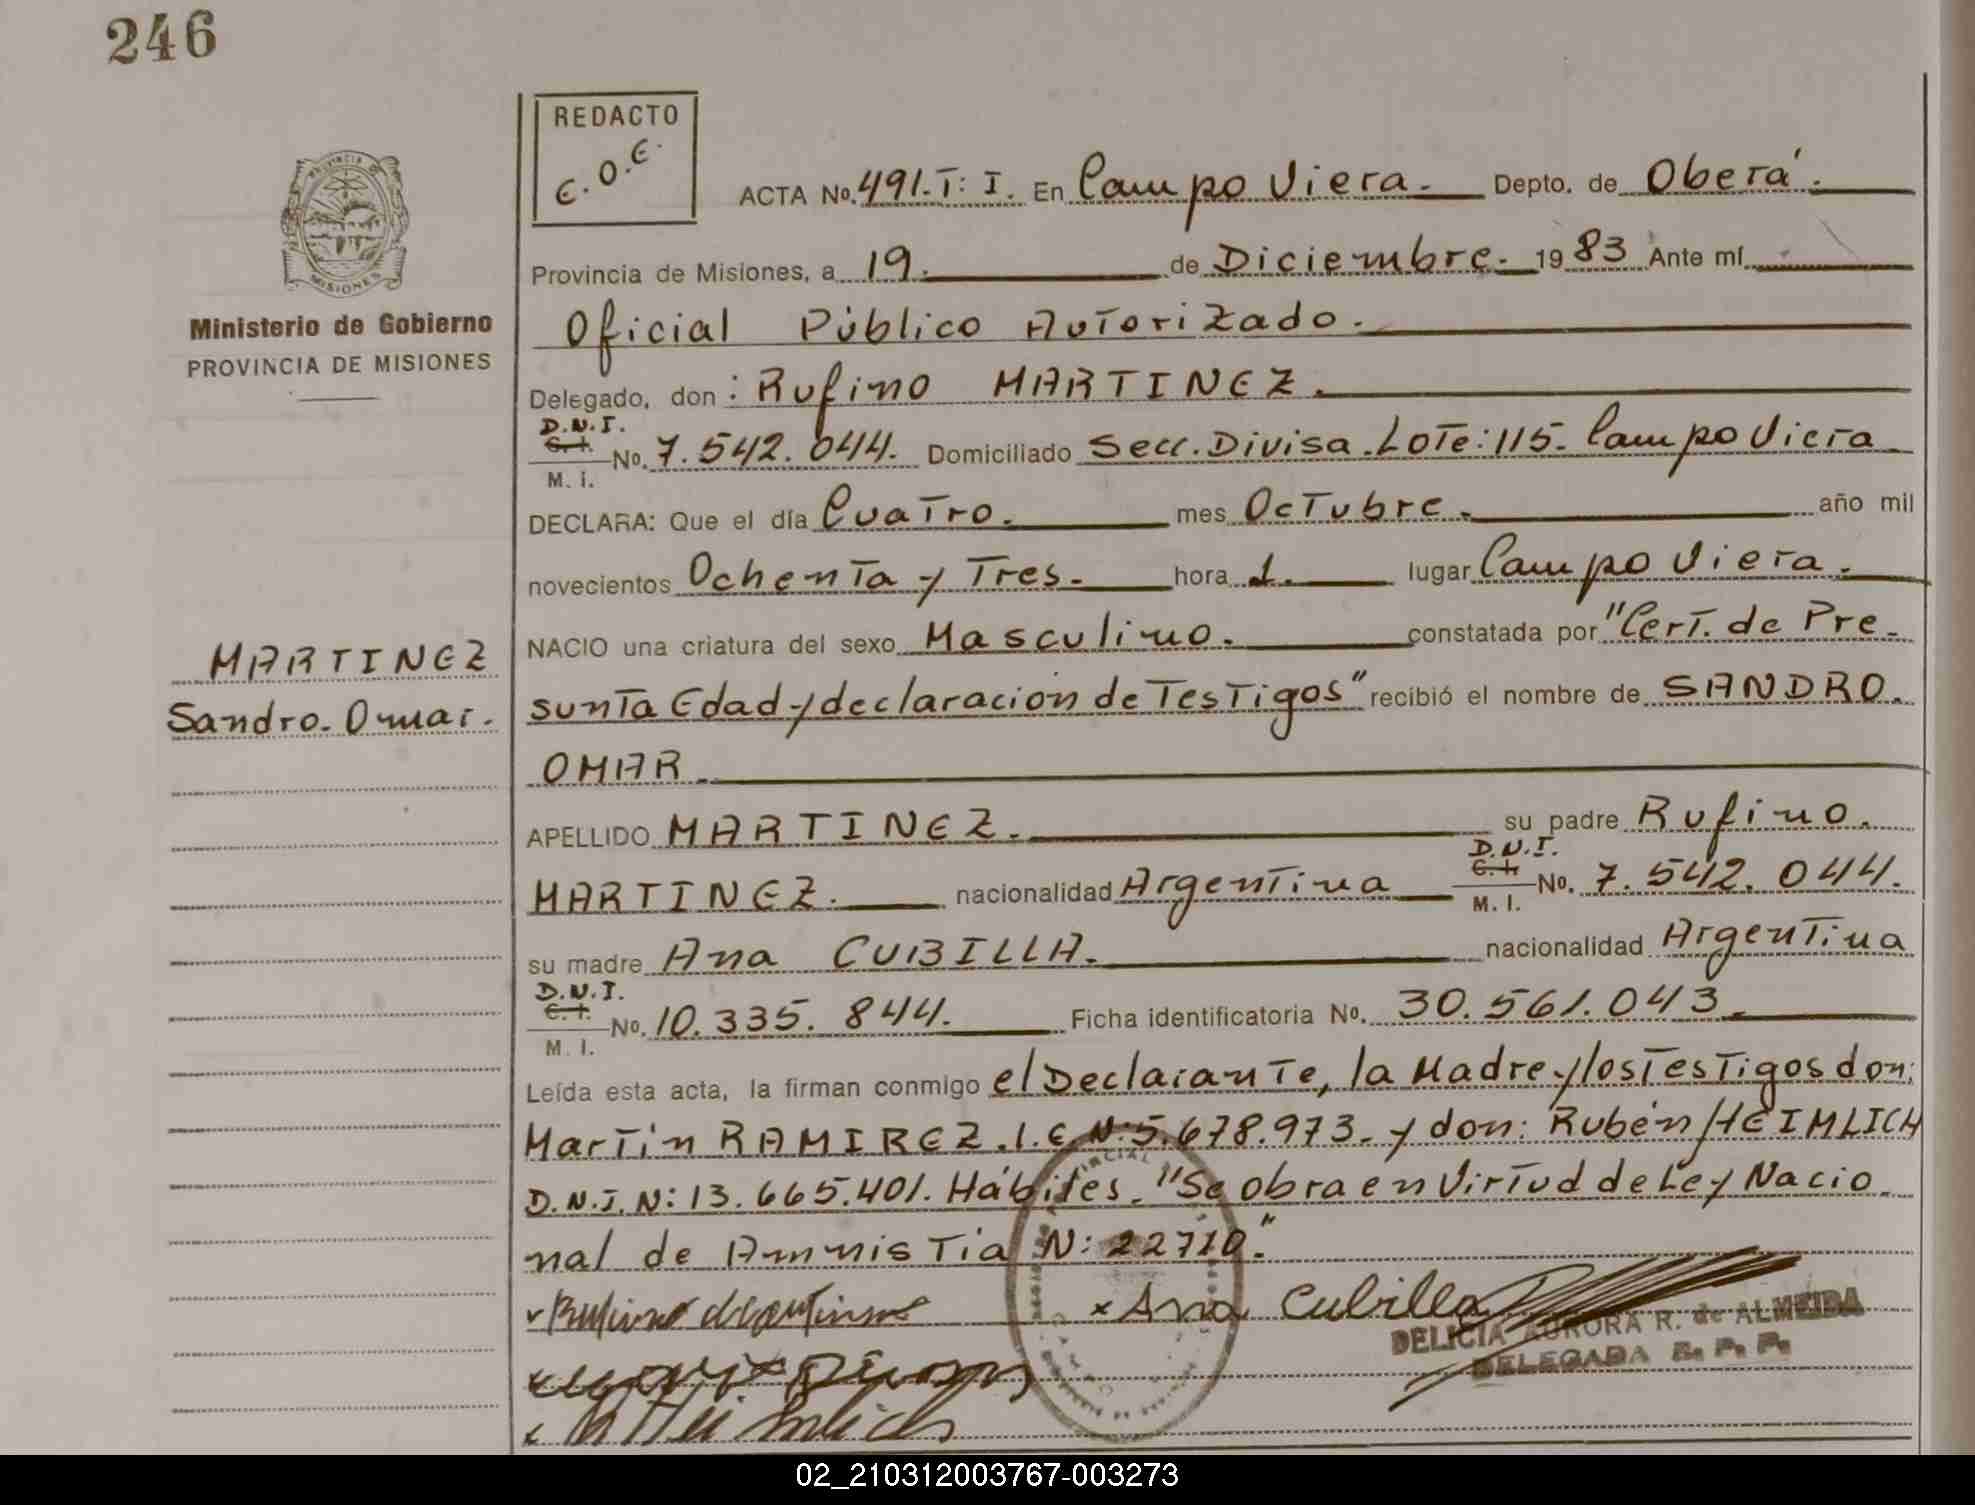 246
REDACTO
C.O.C.
ACTA No. 491.T: I. En Campo Viera. Depto. de Oberá.
Provincia de Misiones, a 19. de Diciembre. 1983 Ante mí
Ministerio de Gobierno
PROVINCIA DE MISIONES
Oficial Público Autorizado.
Delegado, don: Rufino MARTINEZ.
D.N.I.
C. I.
M. i. No. 7.542.044. Domiciliado Secc. Divisa. Lote: 115. Campo Viera
DECLARA: Que el día Cuatro. mes Octubre. año mil
novecientos Ochenta y Tres. hora 1. lugar Campo Viera.
NACIO una criatura del sexo Masculino. constatada por "Cert. de Pre-
MARTINEZ
Sandro. Omar.
sunta Edad y declaración de Testigos" recibió el nombre de SANDRO.
OMAR.
APELLIDO MARTINEZ. su padre Rufino.
D.N.I.
C. I.
MARTINEZ. nacionalidad Argentina M. I. No. 7.542.044.
su madre Ana CUBILLA. nacionalidad Argentina
D.N.I.
C. I.
M. I. No. 10.335.844. Ficha identificatoria No. 30.561.043.
Leída esta acta, la firman conmigo el Declarante, la Madre y los Testigos don:
Martín RAMIREZ. L.E. N: 5.678.973. y don: Rubén HEIMLICH
D.N.I. N: 13.665.401. Hábiles. "Se obra en Virtud de Ley Nacio-
nal de Amnistía N: 22710."
x Ana Cubilla
DELICIA AURORA R. de ALMEIDA
DELEGADA R. P. P.
PROVINCIA DE MISIONES
02_210312003767-003273